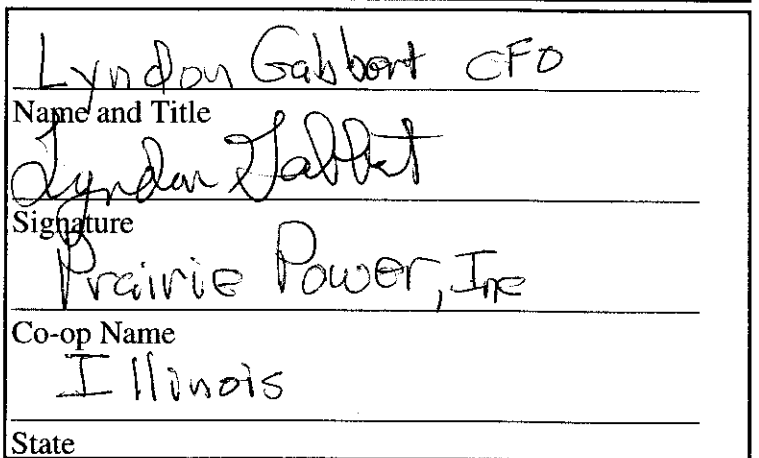 Lyndon Gabbert CFO
Name and Title
Lyndon Gabbert
Signature
Prairie Power, Inc
Co-op Name
Illinois
State